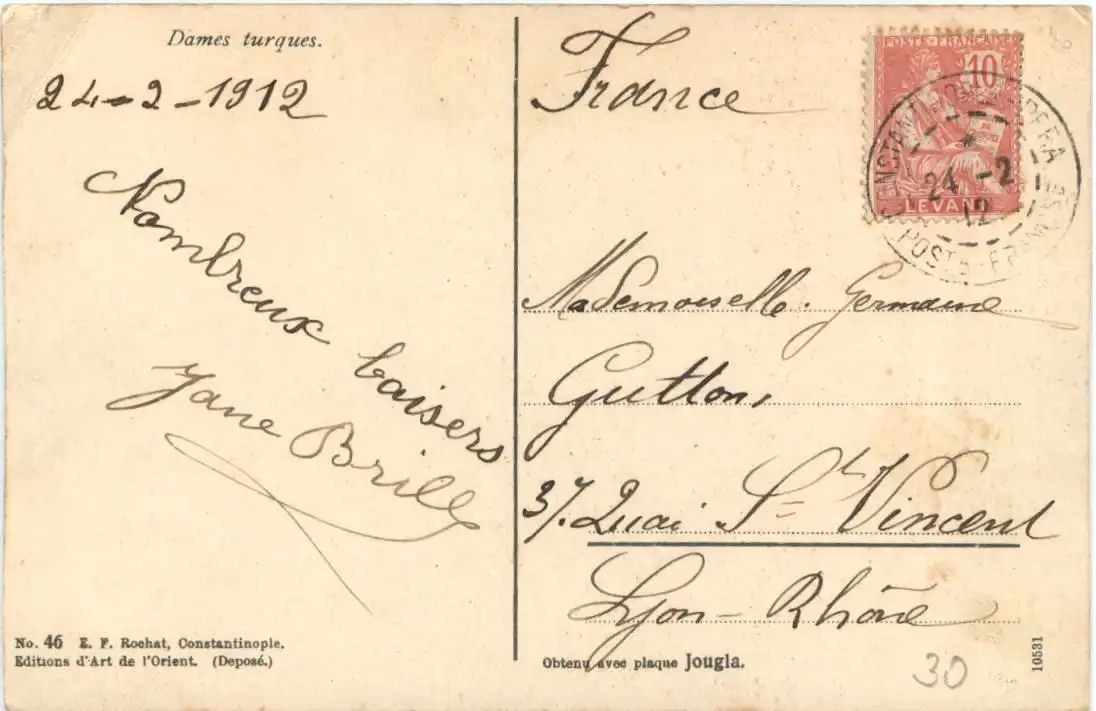 Dames turques.
24-2-1912
Nombreux baisers
Jane Brill
No. 46 E. F. Rochat, Constantinople.
Editions d'Art de l'Orient. (Deposé.)
France
POSTE FRANÇAISE
10
LEVANT
CONSTANTINOPLE PERA
24 -2
12
POSTE FRANÇAISE
Mademoiselle Germaine
Guttons
37. Quai St Vincent
Lyon - Rhône
Obtenu avec plaque Jougla.
10531
30